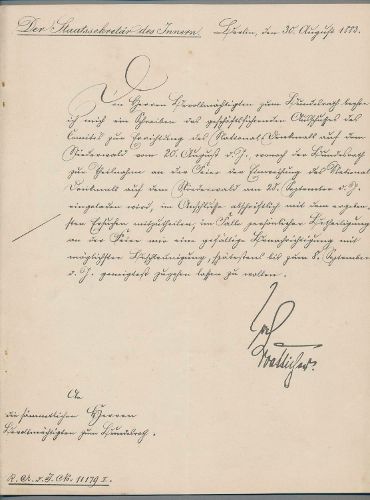 Der Staatssekretär des Innern. Berlin, den 30. August 1883.
Den Herren Bevollmächtigten zum Bundesrath beehre
ich mich ein Schreiben des geschäftsführenden Ausschusses des
Comites zur Errichtung des National-Denkmals auf dem
Niederwald vom 20. August d. J., wonach der Bundesrath
zur Theilnahme an der Feier der Einweihung des National-
Denkmals auf dem Niederwald am 28. September d. J.
eingeladen wird, im Anschlusse abschriftlich mit dem ergeben-
sten Ersuchen mitzutheilen, im Falle persönlicher Betheiligung
an der Feier mir eine gefällige Benachrichtigung mit
möglichster Beschleunigung, spätestens bis zum 8. September
d. J. geneigtest zugehen lassen zu wollen.
Boetticher.
An
die sämmtlichen Herren
Bevollmächtigten zum Bundesrath.
R. A. d. J. No. 11179 I.